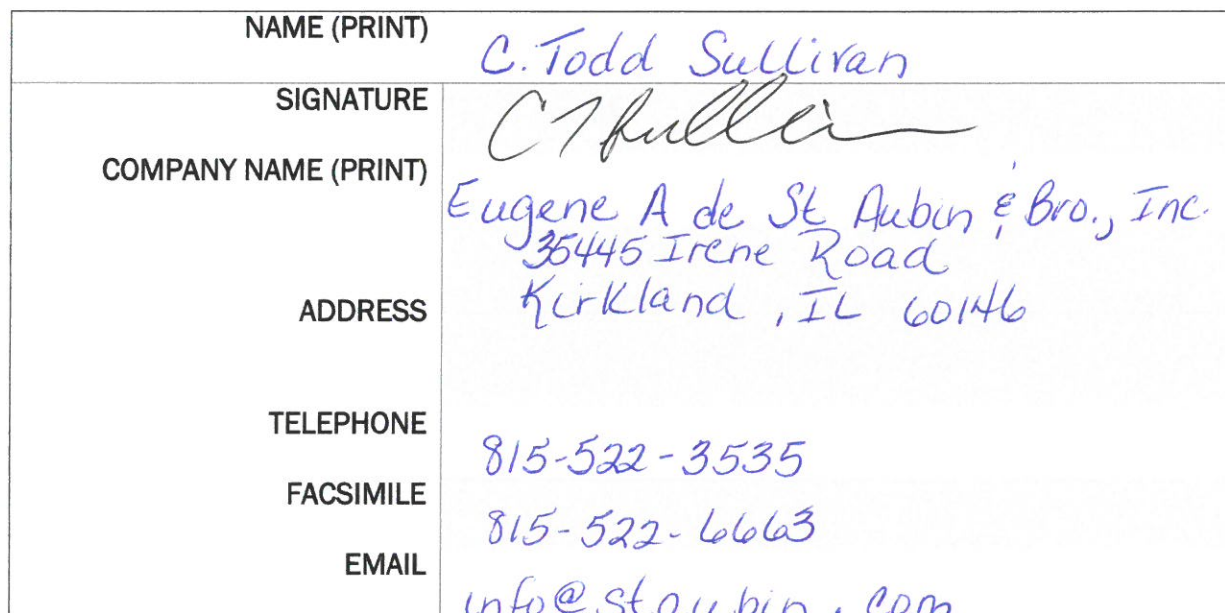 NAME (PRINT) C. Todd Sullivan
SIGNATURE CT Sullivan
COMPANY NAME (PRINT) Eugene A de St Aubin & Bro., Inc.
35445 Irene Road
ADDRESS Kirkland, IL 60146
TELEPHONE 815-522-3535
FACSIMILE 815-522-6663
EMAIL info@staubin.com